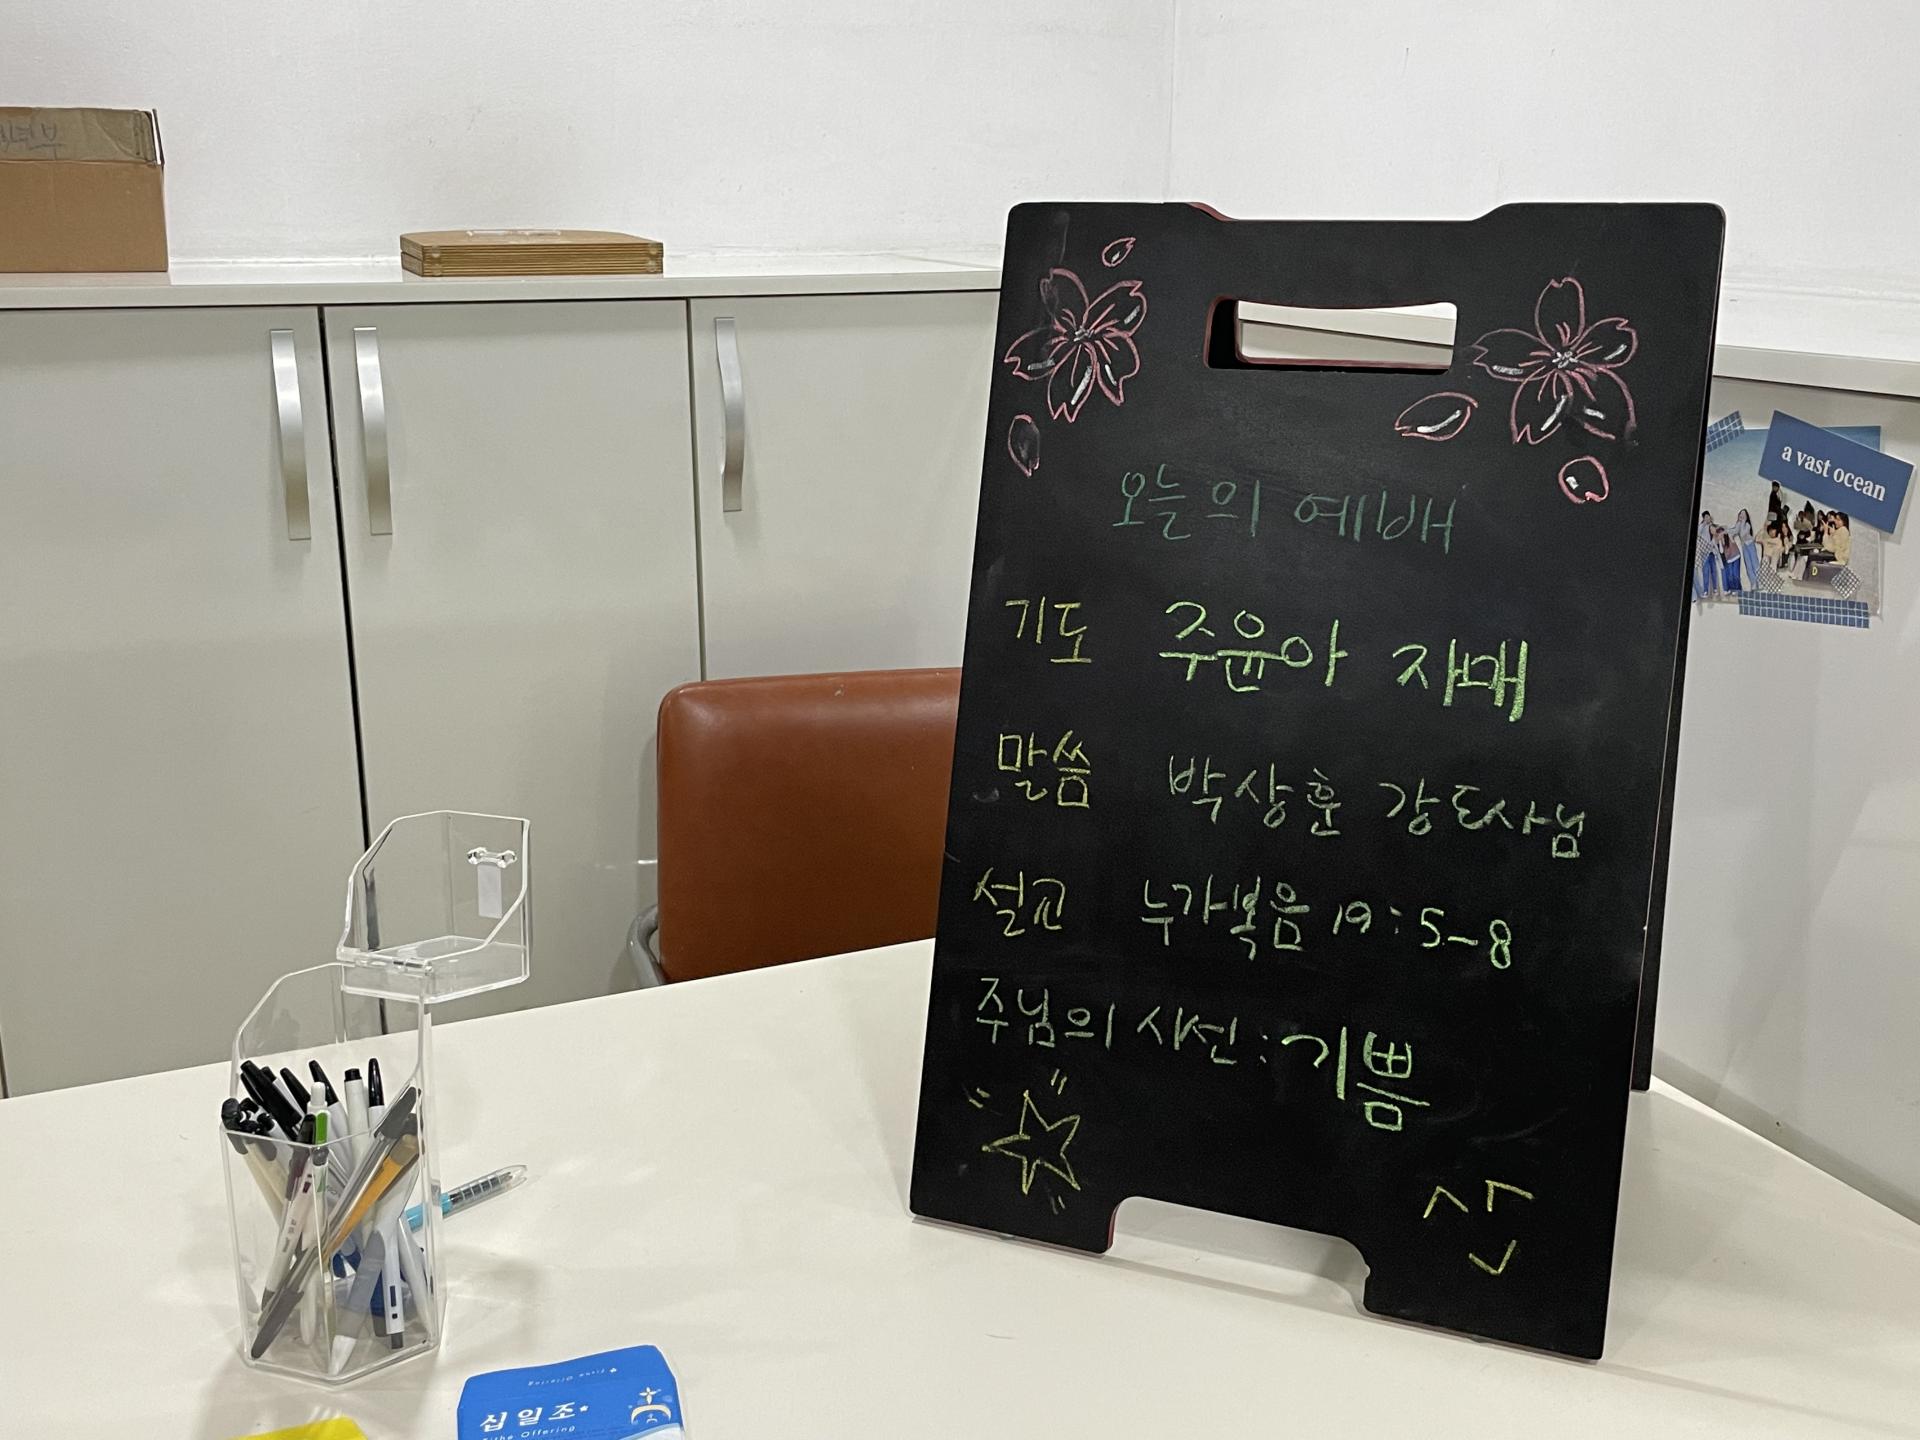 오늘의 예배
기도 주윤아 자매
말씀 박상훈 강도사님
설교 누가복음 19:5-8
주님의 시선:기쁨
a vast ocean
십일조
Tithe Offering